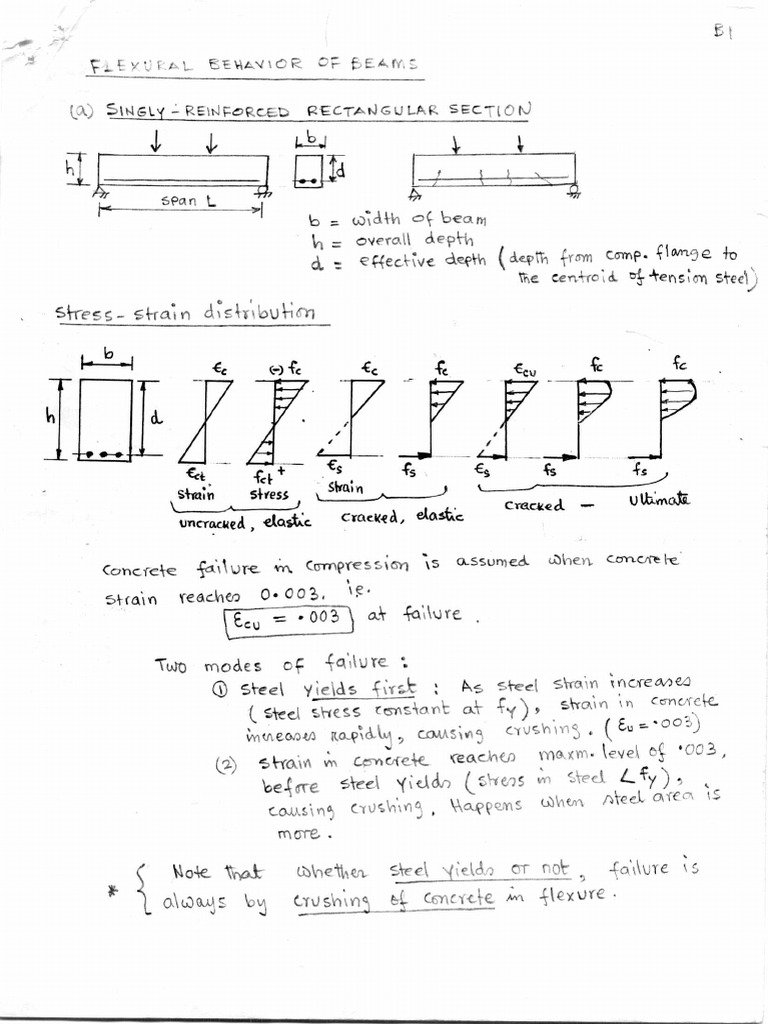 B1
FLEXURAL BEHAVIOR OF BEAMS
(a) SINGLY-REINFORCED RECTANGULAR SECTION
b
h
d
span L
b = width of beam
h = overall depth
d = effective depth (depth from comp. flange to
the centroid of tension steel)
Stress-strain distribution
b
h
d
ϵc (-) fc ϵc fc ϵcu fc fc
ϵct fct + ϵs fs ϵs fs fs
strain stress strain
uncracked, elastic cracked, elastic cracked - ultimate
Concrete failure in compression is assumed when concrete
strain reaches 0.003. ie.
Ɛcu = .003 at failure.
Two modes of failure :
① Steel yields first : As steel strain increases
(steel stress constant at fy), strain in concrete
increases rapidly, causing crushing. (Ɛu = .003)
(2) Strain in concrete reaches maxm. level of .003,
before steel yields (stress in steel < fy),
causing crushing. Happens when steel area is
more.
* { Note that whether steel yields or not, failure is
always by crushing of concrete in flexure.